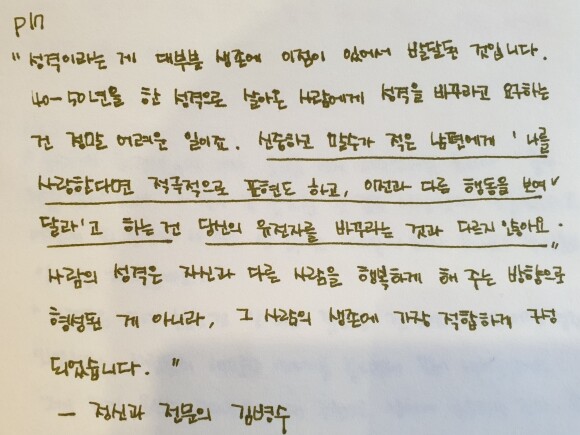 p17
"성격이라는 게 대부분 생존에 이점이 있어서 발달된 것입니다.
40-50년을 한 성격으로 살아온 사람에게 성격을 바꾸라고 요구하는
건 정말 어려운 일이죠. 신중하고 말수가 적은 남편에게 '나를
사랑한다면 적극적으로 표현도 하고, 이전과 다른 행동을 보여
달라'고 하는 건 당신의 유전자를 바꾸라는 것과 다르지 않아요.
사람의 성격은 자신과 다른 사람을 행복하게 해 주는 방향으로
형성된 게 아니라, 그 사람의 생존에 가장 적합하게 구성
되었습니다. "
- 정신과 전문의 김병수